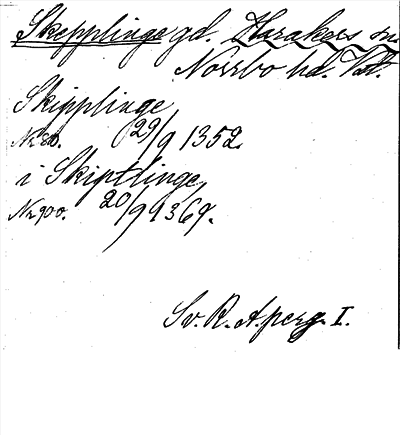 Skepplinge gd. Harakers sn.
Norrbo hd. Vstl.
Skipplinge
Nr 80. 29/9 1352.
i Skiptlinge,
Nr 900. 20/9 1369.
Sv. R. Aperg. I.